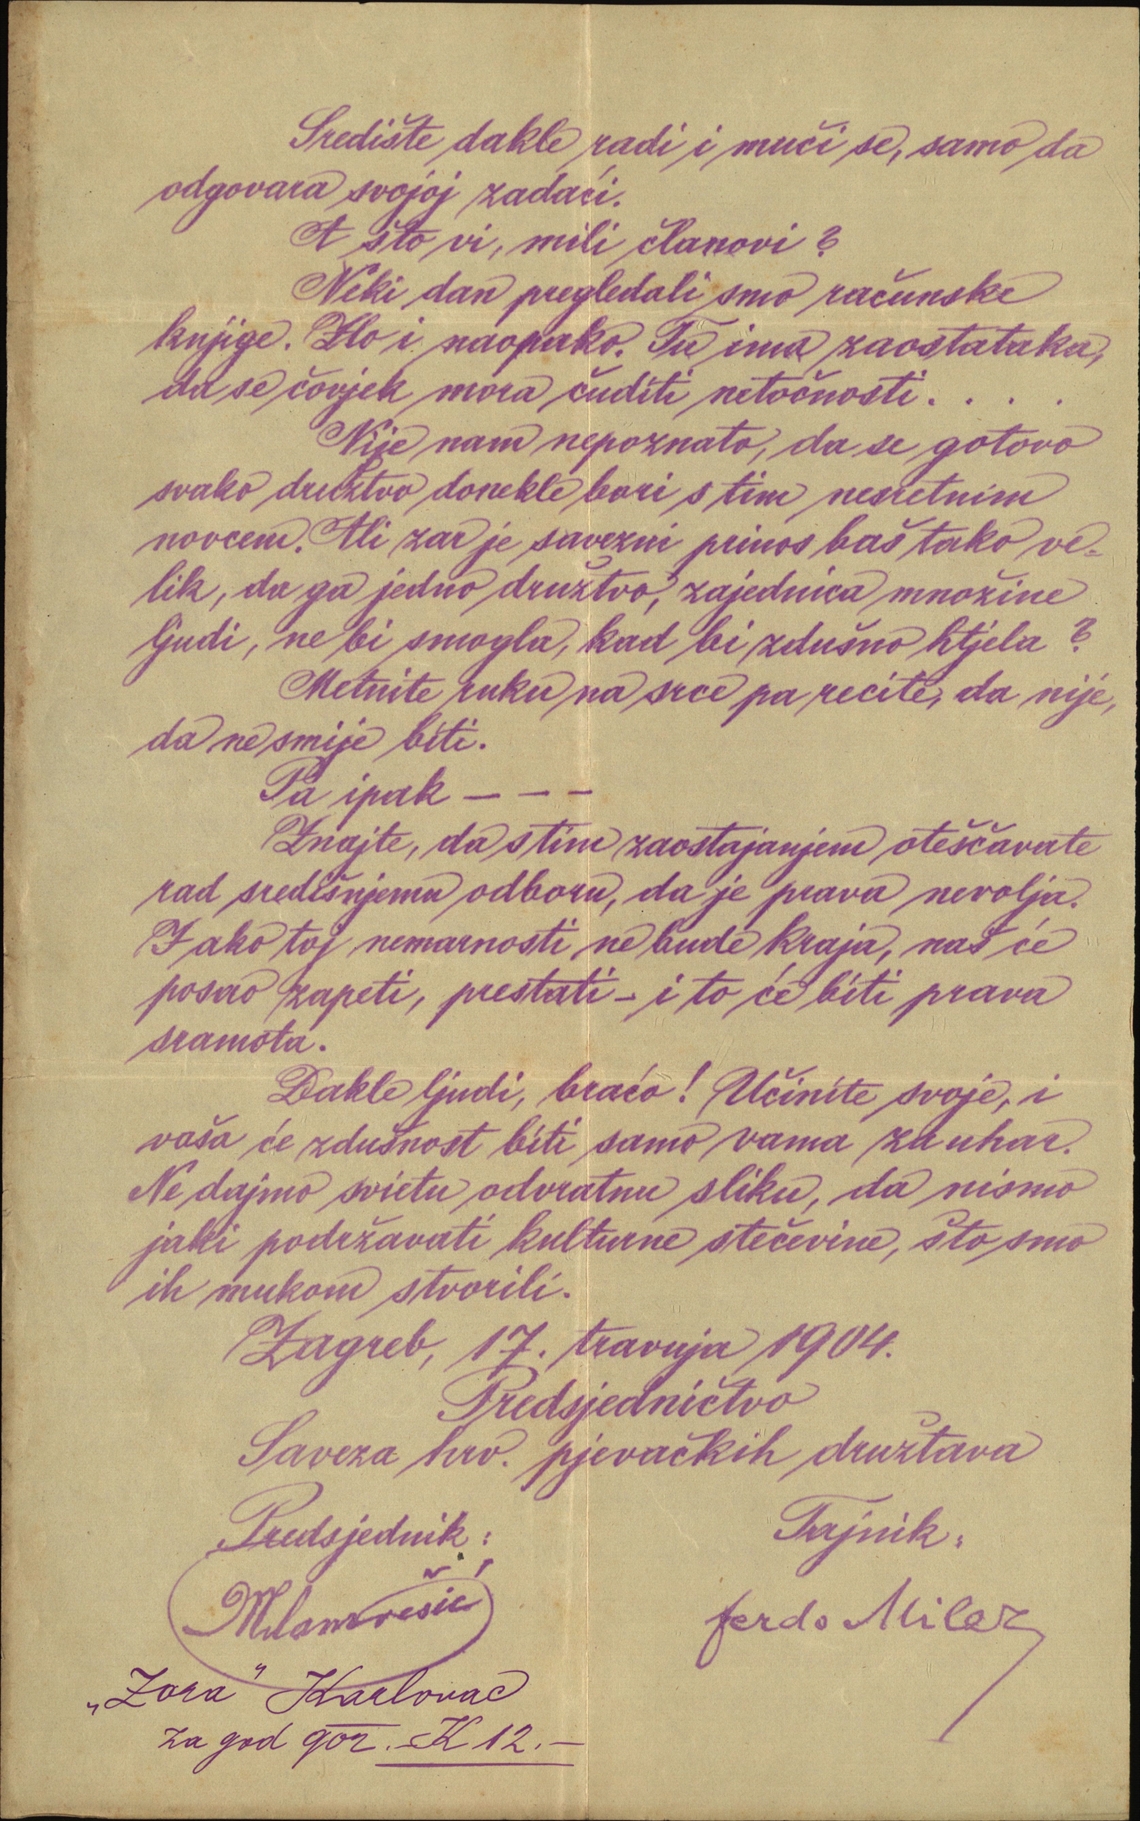 Središte dakle radi i muči se, samo da
odgovara svojoj zadaći.
A što vi, mili članovi?
Neki dan pregledali smo računske
knjige. Zlo i naopako. Tu ima zaostataka,
da se čovjek mora čuditi netočnosti. . . .
Nije nam nepoznato, da se gotovo
svako družtvo donekle bori s tim nesretnim
novcem. Ali zar je savezni prinos baš tako ve-
lik, da ga jedno družtvo, zajednica množine
ljudi, ne bi smogla, kad bi zdušno htjela?
Metnite ruku na srce pa recite, da nije,
da ne smije biti.
Pa ipak – – –
Znajte, da s tim zaostajanjem otešćavate
rad središnjemu odboru, da je prava nevolja.
I ako toj nemarnosti ne bude kraja, naš će
posao zapeti, prestati – i to će biti prava
sramota.
Dakle ljudi, braćo! Učinite svoje, i
vaša će zdušnost biti samo vama za uhar.
Ne dajmo svietu odvratnu sliku, da nismo
jaki podržavati kulturne stečevine, što smo
ih mukom stvorili.
Zagreb, 17. travnja 1904.
Predsjedničtvo
Saveza hrv. pjevačkih družtava
Predsjednik: Tajnik:
Milan Ferdo Miler
„Zora" Karlovac
za god 902. K 12.–